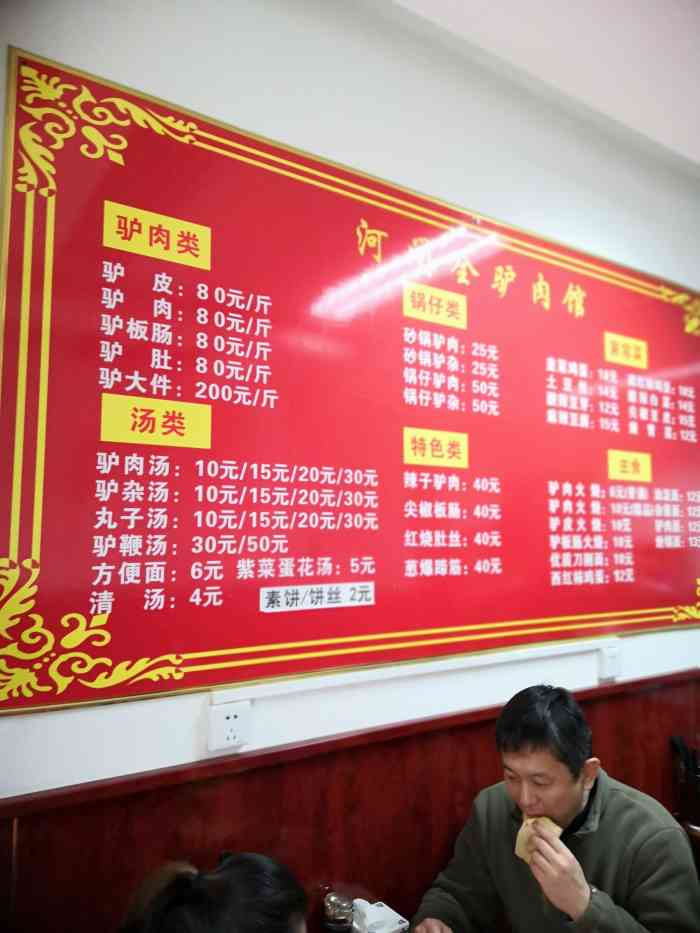 河 全驴肉馆
驴肉类
驴 皮：80元/斤
驴 肉：80元/斤
驴板肠：80元/斤
驴 肚：80元/斤
驴大件：200元/斤
汤类
驴肉汤：10元/15元/20元/30元
驴杂汤：10元/15元/20元/30元
丸子汤：10元/15元/20元/30元
驴鞭汤：30元/50元
方便面：6元 紫菜蛋花汤：5元
清 汤：4元 素饼/饼丝 2元
锅仔类
砂锅驴肉：25元
砂锅驴杂：25元
锅仔驴肉：50元
锅仔驴杂：50元
特色类
辣子驴肉：40元
尖椒板肠：40元
红烧肚丝：40元
葱爆蹄筋：40元
家常菜
土豆丝：14元
主食
驴肉火烧：
驴肉火烧：
驴皮火烧：10元
驴板肠火烧：10元
优质刀削面：10元
西红柿鸡蛋：12元